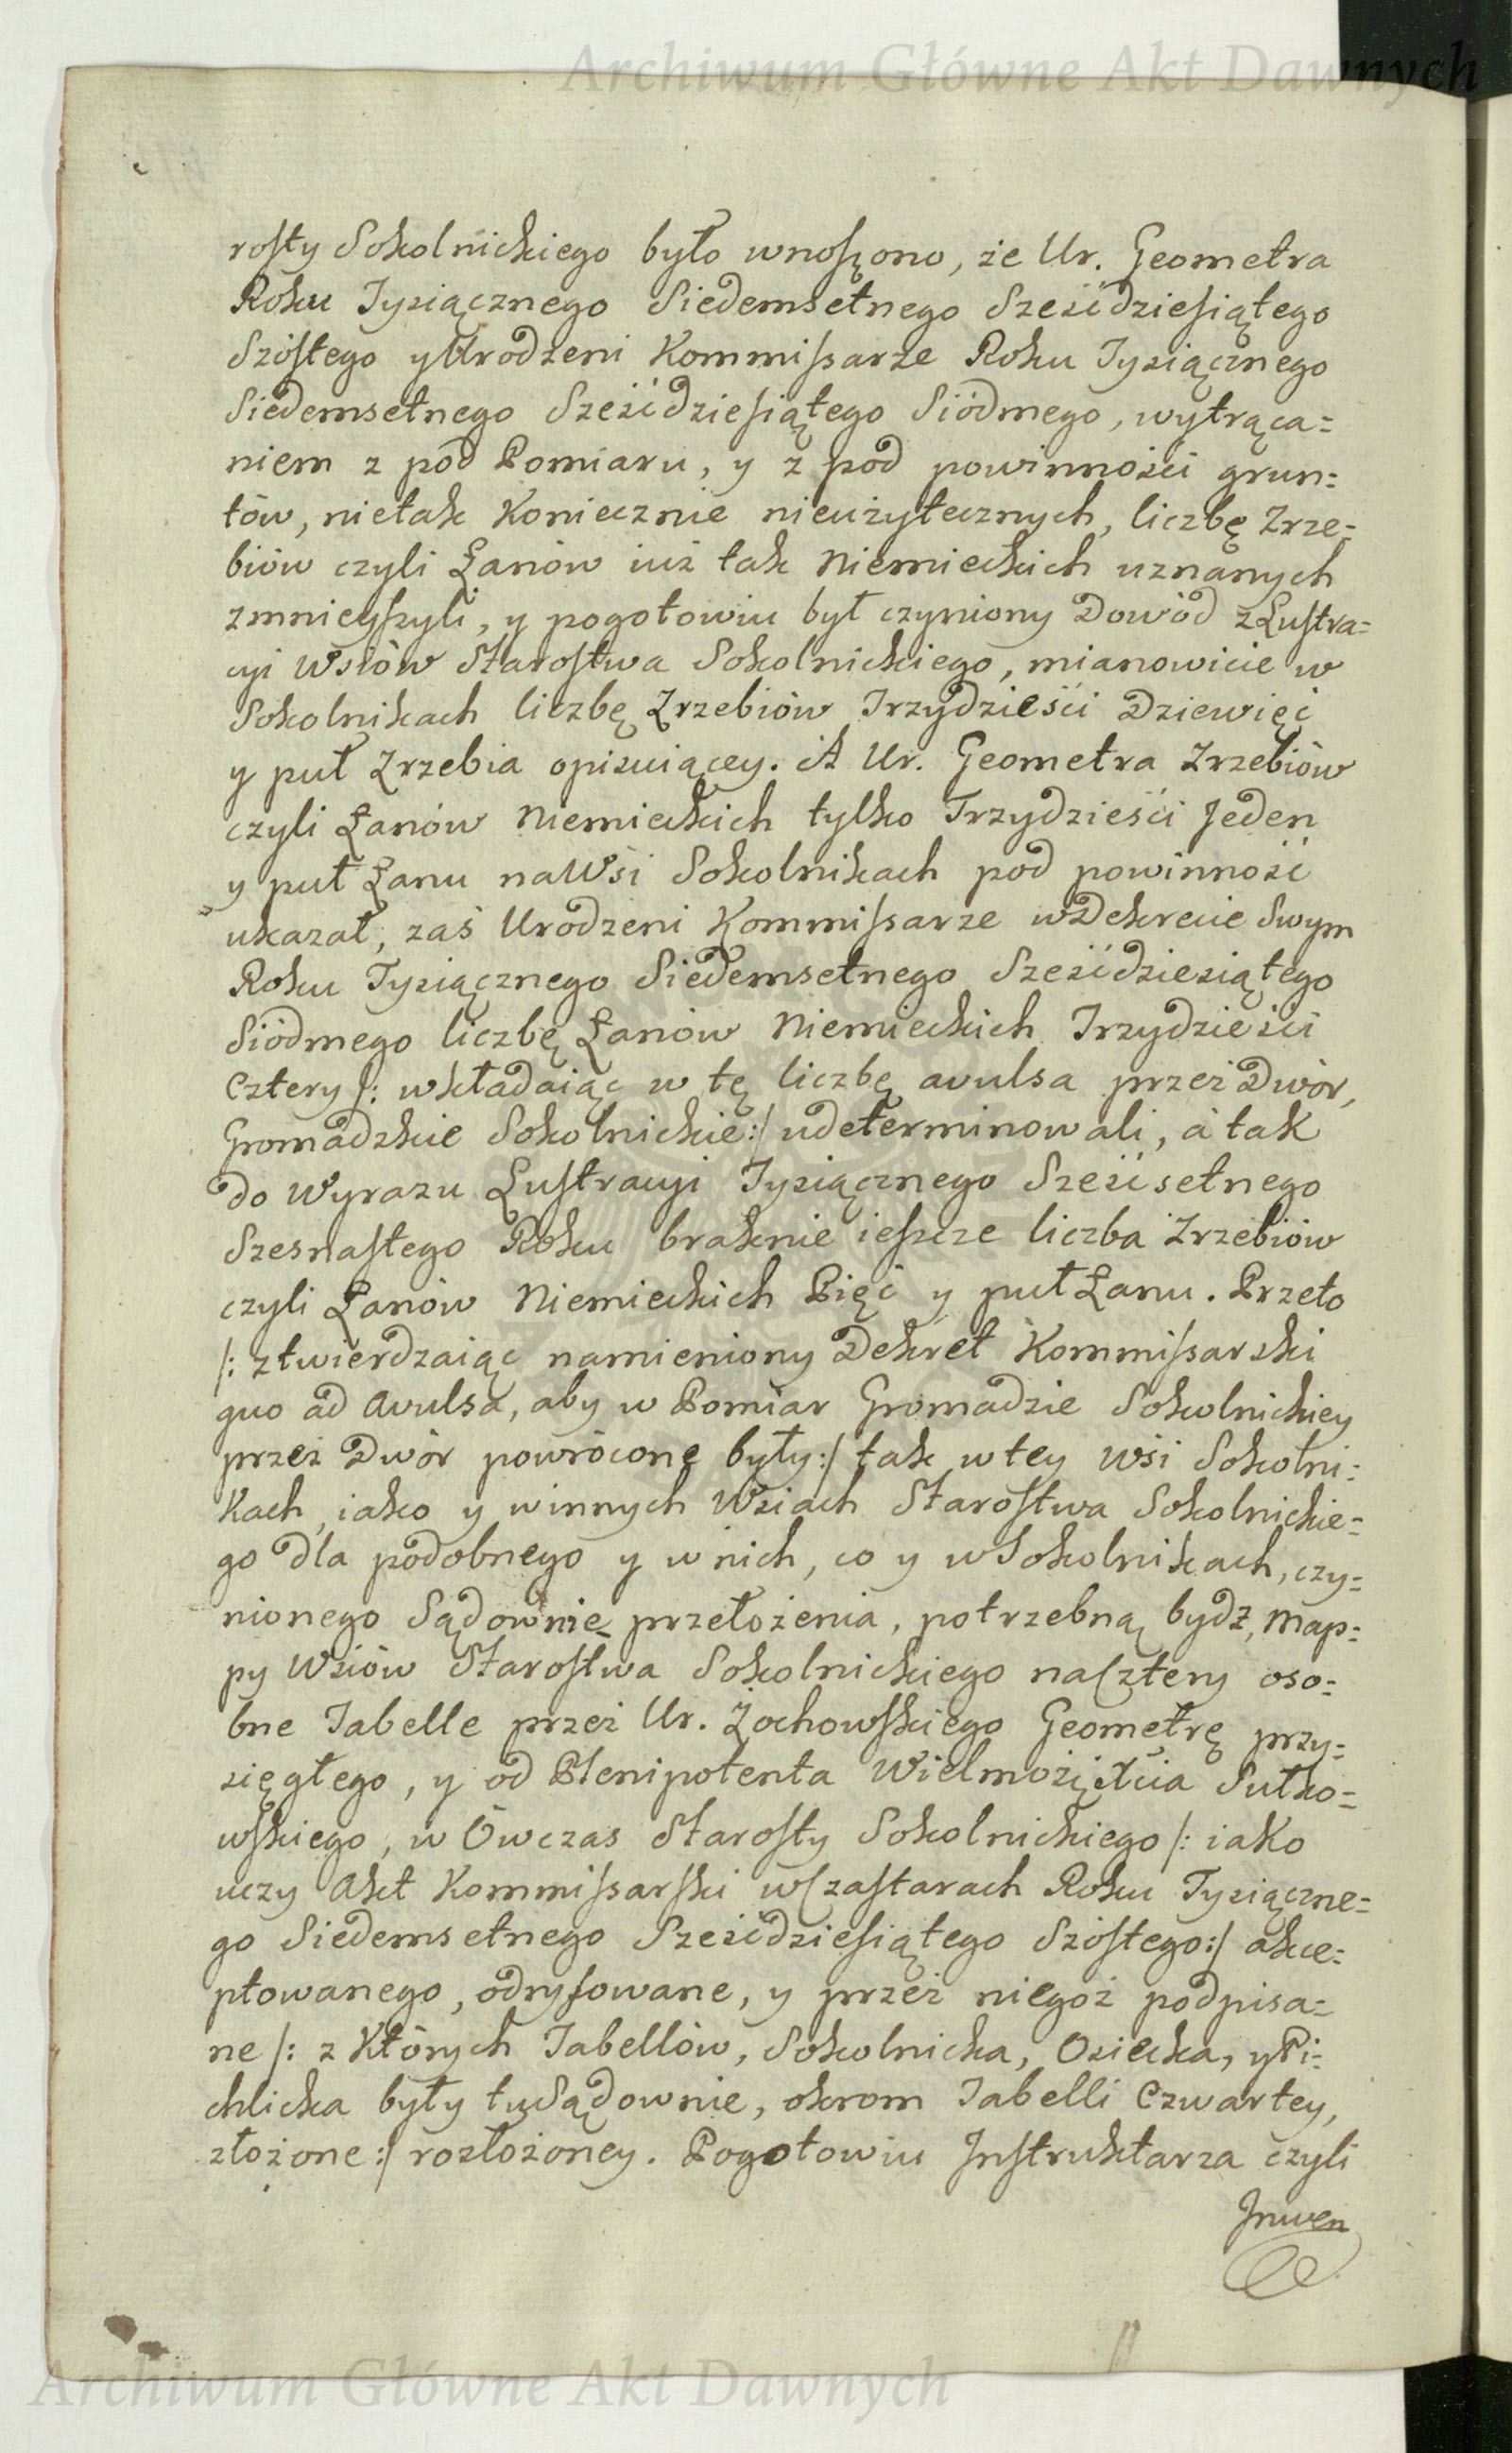 Archiwum Główne Akt Dawnych
rosty Sokolnickiego było wnoszono, że Ur. Geometra
Roku Tysiącznego Siedemsetnego Sześćdziesiątego
Szóstego y Urodzeni Kommissarze Roku Tysiącznego
Siedemsetnego Sześćdziesiątego Siódmego, wytrąca=
niem z pod Pomiaru, y z pod powinności grun=
tów, nietak Koniecznie nieużytecznych, liczbę Zrze=
biów czyli Łanów iuż tak Niemieckich uznanych
zmnieyszyli, y pogotowiu był czyniony Dowód z Lustra=
cyi Wsiów Starostwa Sokolnickiego, mianowicie w
Sokolnikach liczbę Zrzebiów Trzydzieści Dziewięć
y puł Zrzebia opisuiącey. A Ur. Geometra Zrzebiów
czyli Łanów Niemieckich tylko Trzydzieści Jeden
y puł Łanu na Wsi Sokolnikach pod powinność
ukazał, zaś Urodzeni Kommissarze w Dekrecie Swym
Roku Tysiącznego Siedemsetnego Sześćdziesiątego
Siódmego liczbę Łanów Niemieckich Trzydzieści
Cztery /: wkładaiąc w tę liczbę avulsa przez Dwór,
Gromadzkie Sokolnickie :/ udeterminowali, a tak
do Wyrazu Lustracyi Tysiącznego Sześćsetnego
Szesnastego Roku braknie ieszcze liczba Zrzebiów
czyli Łanów Niemieckich Pięć y puł Łanu. Przeto
/: ztwierdzaiąc namieniony Dekret Kommissarski
quo ad Avulsa, aby w Pomiar Gromadzie Sokolnickiey
przez Dwór powrócone były :/ tak w tey Wsi Sokolni=
kach, iako y w innych Wsiach Starostwa Sokolnickie=
go dla podobnego y w nich, co y w Sokolnikach, czy=
nionego Sądownie przełożenia, potrzebną bydź, Map=
py Wsiów Starostwa Sokolnickiego na Cztery oso=
bne Tabelle przez Ur. Żochowskiego Geometrę przy=
sięgłego, y od Plenipotenta Wielmoż Xcia Sułko=
wskiego, w Ówczas Starosty Sokolnickiego /: iako
uczy Akt Kommissarski w Czastarach Roku Tysiączne=
go Siedemsetnego Sześćdziesiątego Szóstego :/ akce=
ptowanego, odrysowane, y przez niegoż podpisa=
ne /: z Których Tabellów, Sokolnicka, Osiecka, y Pi=
chlicka były tu Sądownie, okrom Tabelli Czwartey,
złożone :/ rozłożoney. Pogotowiu Jnstruktarza czyli
Jnwen
Archiwum Główne Akt Dawnych